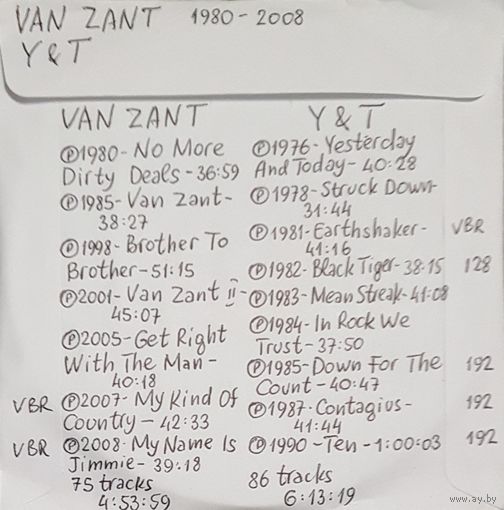 VAN ZANT 1980-2008
Y & T
VAN ZANT
Ⓟ1980-No More
Dirty Deals-36:59
Ⓟ1985-Van Zant-
38:27
Ⓟ1998-Brother To
Brother-51:15
Ⓟ2001-Van Zant II-
45:07
Ⓟ2005-Get Right
With The Man-
40:18
VBR Ⓟ2007-My Kind Of
Country-42:33
VBR Ⓟ2008-My Name Is
Jimmie-39:18
75 tracks
4:53:59
Y & T
Ⓟ1976-Yesterday
And Today-40:28
Ⓟ1978-Struck Down-
31:44
Ⓟ1981-Earthshaker- VBR
41:16
Ⓟ1982-Black Tiger-38:15 128
Ⓟ1983-Mean Streak-41:08
Ⓟ1984-In Rock We
Trust-37:50
Ⓟ1985-Down For The 192
Count-40:47
Ⓟ1987-Contagius- 192
41:44
Ⓟ1990-Ten-1:00:03 192
86 tracks
6:13:19
www.ay.by